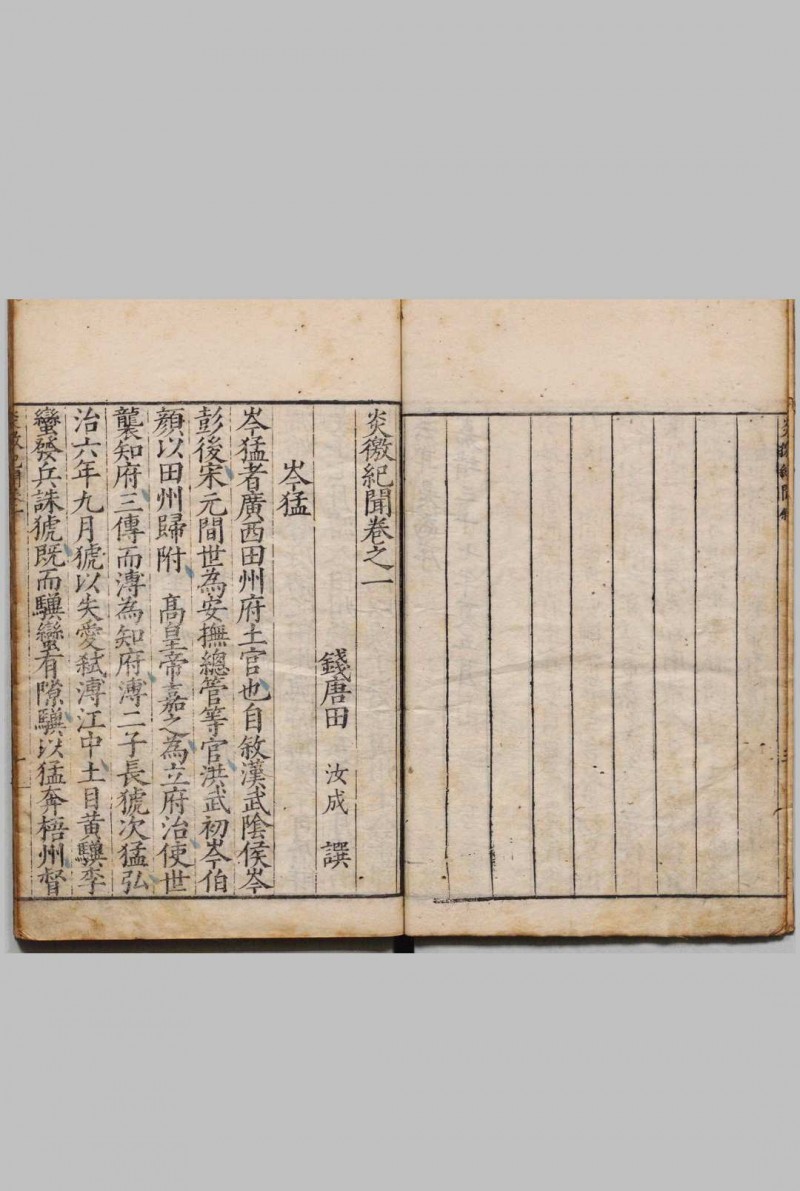 炎徼紀聞卷之一
錢唐田汝成譔
岑猛
岑猛者廣西田州府土官也自敘漢武陰侯岑
彭後宋元間世為安撫總管等官洪武初岑伯
顔以田州歸附　髙皇帝嘉之為立府治使世
襲知府三傳而溥為知府溥二子長猇次猛弘
治六年九月猇以失愛弑溥江中土目黃驥李
蠻發兵誅猇既而驥蠻有隙驥以猛奔梧州督